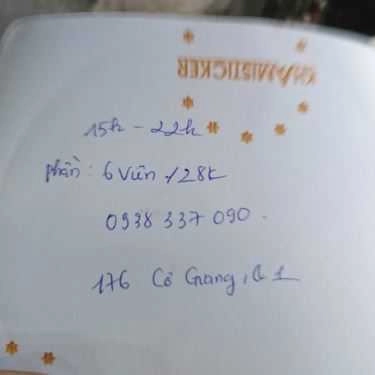 KHAMISTICKER
15h - 22h
phần: 6 viên / 28k
0938 337 090.
176 Cô Giang, Q 1